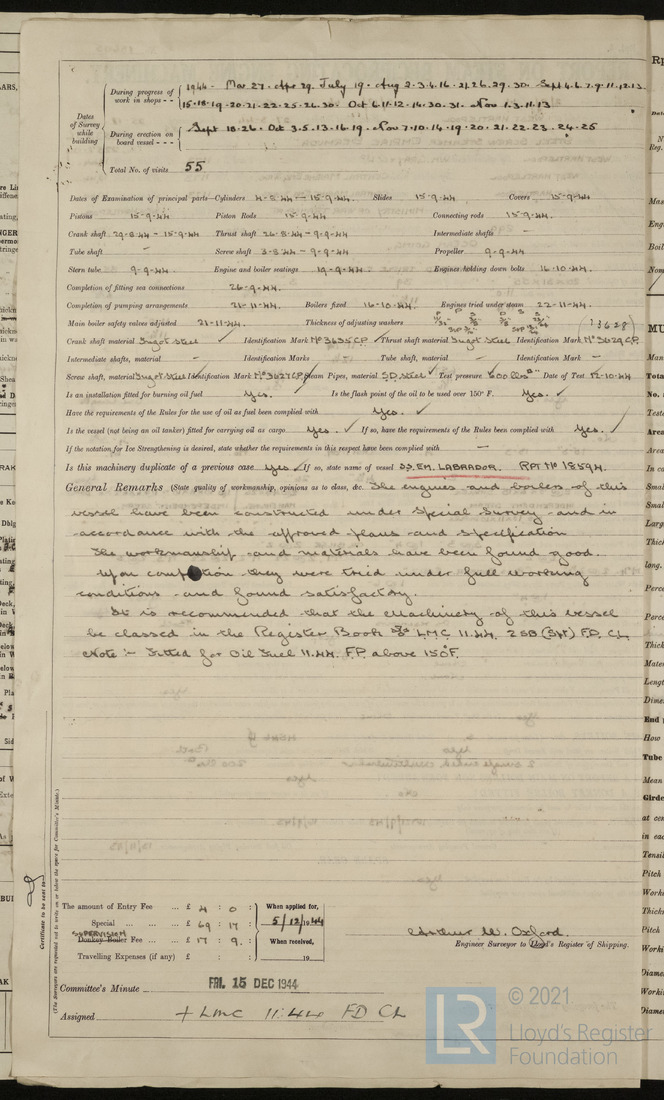 Dates of Survey while building
During progress of work in shops - - 1944 - Mar 27. Apr 29. July 19. Aug 2.3.4.16.21.26.29.30. Sept 4.6.7.9.11.12.13.
15.18.19.20.21.22.25.26.30. Oct 6.11.12.14.30.31. Nov 1.3.11.13
During erection on board vessel - - - Sept 18.26. Oct 3.5.13.16.19. Nov 7.10.14.19.20.21.22.23.24.25
Total No. of visits 55
Dates of Examination of principal parts—Cylinders 4-8-44 — 15-9-44. Slides 15-9-44. Covers 15-9-44
Pistons 15-9-44 Piston Rods 15-9-44 Connecting rods 15-9-44.
Crank shaft 29-8-44 - 15-9-44 Thrust shaft 26-8-44 - 9-9-44 Intermediate shafts -
Tube shaft - Screw shaft 3-8-44 - 9-9-44 Propeller 9-9-44
Stern tube 9-9-44. Engine and boiler seatings 19-9-44. Engines holding down bolts 16-10-44.
Completion of fitting sea connections 26-9-44.
Completion of pumping arrangements 21-11-44. Boilers fixed 16-10-44. Engines tried under steam 22-11-44.
Main boiler safety valves adjusted 21-11-44. Thickness of adjusting washers
Crank shaft material Ingot Steel Identification Mark No 3635 CP Thrust shaft material Ingot Steel Identification Mark No 3629 CP. (3628)
Intermediate shafts, material - Identification Marks - Tube shaft, material - Identification Mark -
Screw shaft, material Ingot Steel Identification Mark No 3627 CP Steam Pipes, material S.D. Steel Test pressure 600 lbs □" Date of Test 12-10-44
Is an installation fitted for burning oil fuel Yes. Is the flash point of the oil to be used over 150° F. Yes.
Have the requirements of the Rules for the use of oil as fuel been complied with Yes.
Is the vessel (not being an oil tanker) fitted for carrying oil as cargo Yes. If so, have the requirements of the Rules been complied with Yes.
If the notation for Ice Strengthening is desired, state whether the requirements in this respect have been complied with -
Is this machinery duplicate of a previous case Yes If so, state name of vessel S.S. EM. LABRADOR. RPT No 18594.
General Remarks (State quality of workmanship, opinions as to class, &c. The engines and boilers of this
vessel have been constructed under Special Survey and in
accordance with the approved plans and specification
The workmanship and materials have been found good.
Upon completion they were tried under full working
conditions and found satisfactory.
It is recommended that the machinery of this vessel
be classed in the Register Book LMC 11.44. 2SB (Spt) F.D. CL
Note:- Fitted for Oil Fuel 11.44. F.P. above 150°F.
Certificate to be sent to
(The Surveyors are requested not to write on or below the space for Committee's Minute.)
The amount of Entry Fee ... £ 4 : 0 : When applied for,
Special ... ... £ 69 : 17 : 5/12/1944
SUPERVISION
Donkey Boiler Fee ... £ 17 : 9. : When received,
Travelling Expenses (if any) £ : : 19
Arthur W. Oxford.
Engineer Surveyor to Lloyd's Register of Shipping.
Committee's Minute FRI. 15 DEC 1944
Assigned + LMC 11.44 FD CL
LR © 2021
Lloyd's Register
Foundation